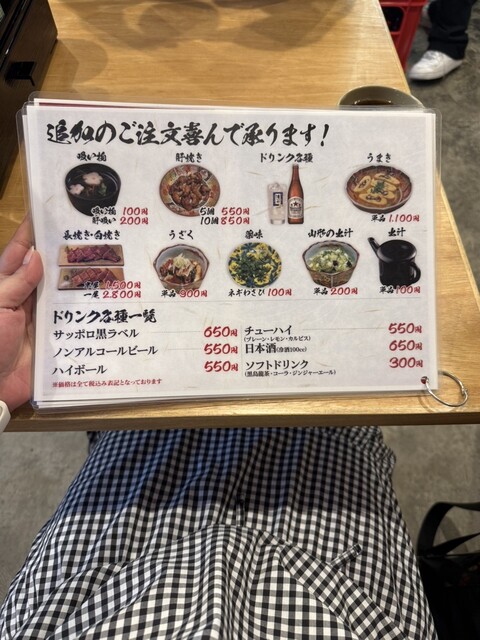 追加のご注文喜んで承ります!
吸い物
吸い物 100円
肝吸い 200円
肝焼き
5個 550円
10個 850円
ドリンク各種
うまき
単品 1.100円
長焼き・白焼き
1.500円
一尾 2.800円
うざく
単品 900円
薬味
ネギわさび 100円
山形の出汁
単品 200円
出汁
単品 100円
ドリンク各種一覧
サッポロ黒ラベル 650円
ノンアルコールビール 550円
ハイボール 550円
※価格は全て税込み表記となっております
チューハイ 550円
(プレーン・レモン・カルピス)
日本酒(冷酒100cc) 650円
ソフトドリンク 300円
(黒烏龍茶・コーラ・ジンジャーエール)